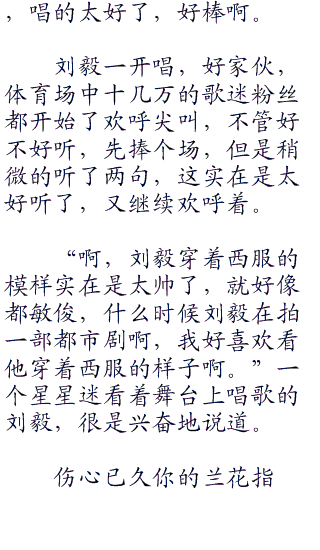 ，唱的太好了，好棒啊。
刘毅一开唱，好家伙，
体育场中十几万的歌迷粉丝
都开始了欢呼尖叫，不管好
不好听，先捧个场，但是稍
微的听了两句，这实在是太
好听了，又继续欢呼着。
“啊，刘毅穿着西服的
模样实在是太帅了，就好像
都敏俊，什么时候刘毅在拍
一部都市剧啊，我好喜欢看
他穿着西服的样子啊。”一
个星星迷看着舞台上唱歌的
刘毅，很是兴奋地说道。
伤心已久你的兰花指